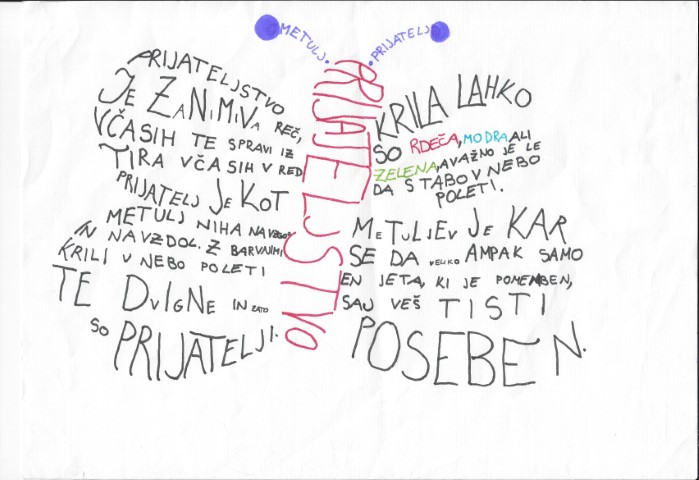 METULJ.
. PRIJATELJ
PRIJATELJSTVO
PRIJATELJSTVO
JE ZANIMIVA REČ,
VČASIH TE SPRAVI IZ
TIRA VČASIH V RED
PRIJATELJ JE KOT
METULJ NIHA NAVZGOR
IN NAVZDOL. Z BARVNIMI
KRILI V NEBO POLETI
TE DVIGNE IN ZATO
SO PRIJATELJI.
KRILA LAHKO
SO RDEČA, MODRA, ALI
ZELENA, A VAŽNO JE LE
DA S TABO V NEBO
POLETI.
METULJEV JE KAR
SE DA VELIKO AMPAK SAMO
EN JETA, KI JE POMEMBEN,
SAJ VEŠ TISTI
POSEBEN.